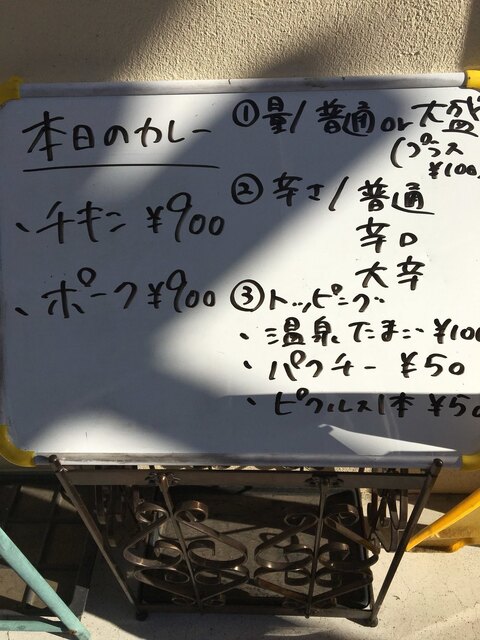 本日のカレー
・チキン ¥900
・ポーク ¥900
①量/普通or大盛
(プラス
¥100)
②辛さ/普通
辛口
大辛
③トッピング
・温泉たまご ¥100
・パクチー ¥50
・ピクルス1本 ¥50